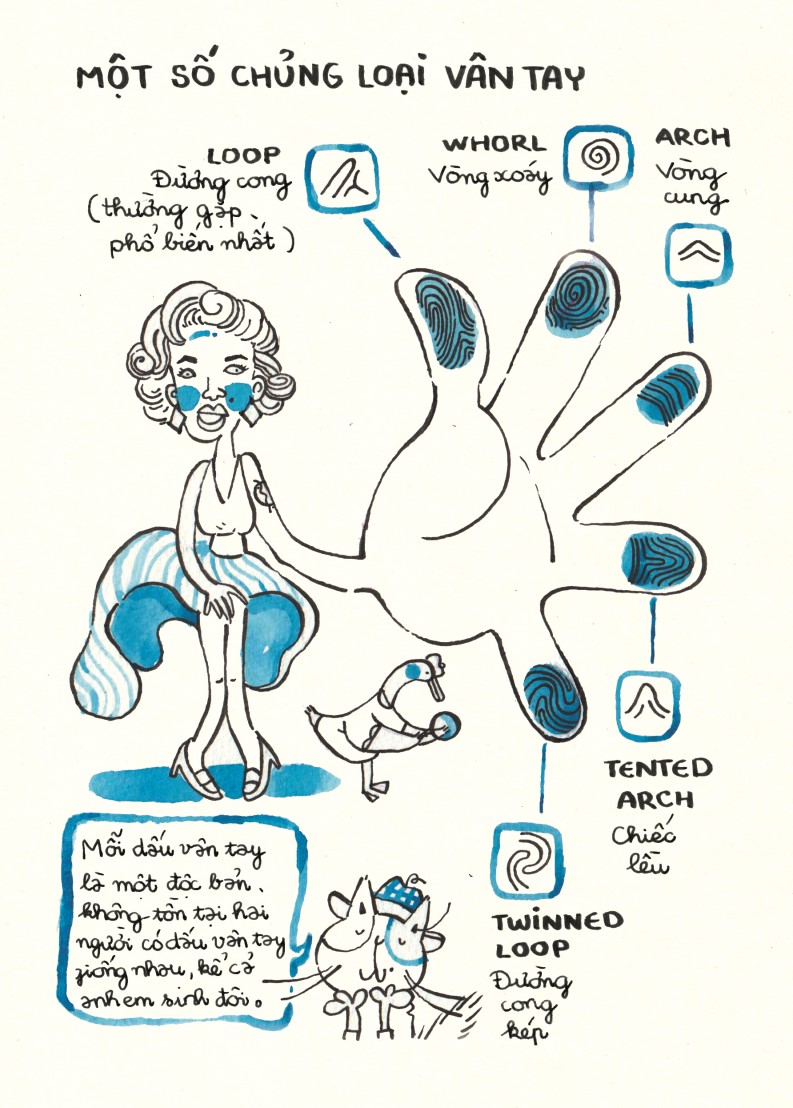 MỘT SỐ CHỦNG LOẠI VÂN TAY
LOOP
Đường cong
(thường gặp,
phổ biến nhất)
WHORL
Vòng xoáy
ARCH
Vòng
cung
TENTED
ARCH
Chiếc
lều
TWINNED
LOOP
Đường
cong
kép
Mỗi dấu vân tay
là một độc bản,
không tồn tại hai
người có dấu vân tay
giống nhau, kể cả
anh em sinh đôi.